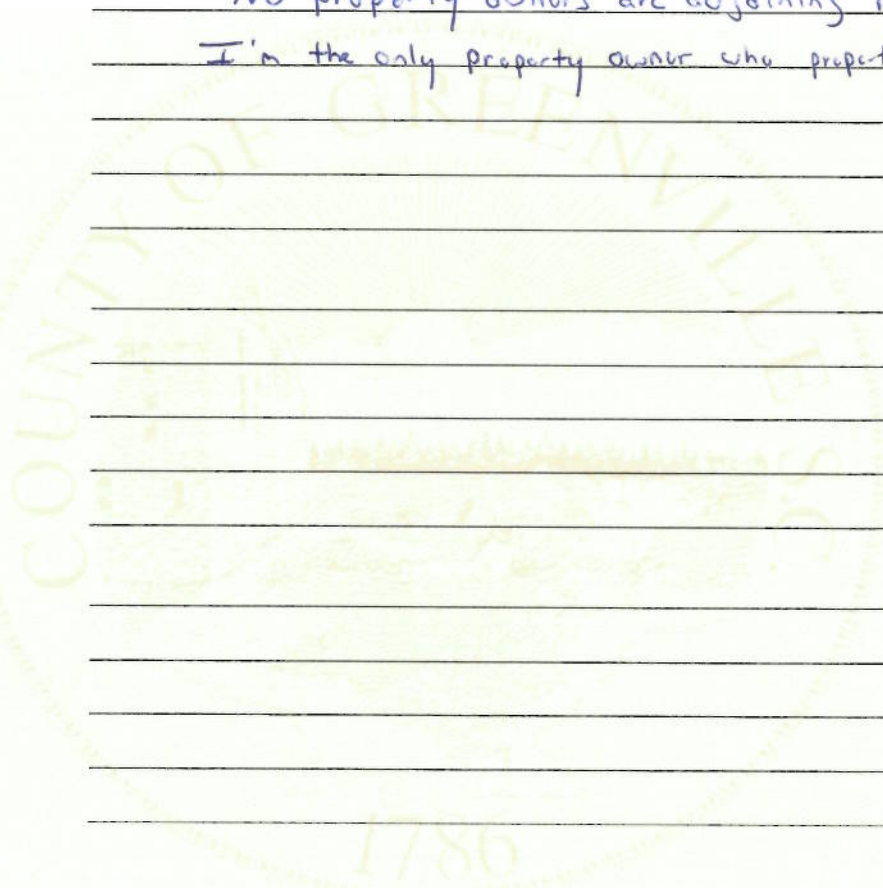 No property owners are adjoining
I'm the only property owner who propert
COUNTY OF GREENVILLE S.C.
1786